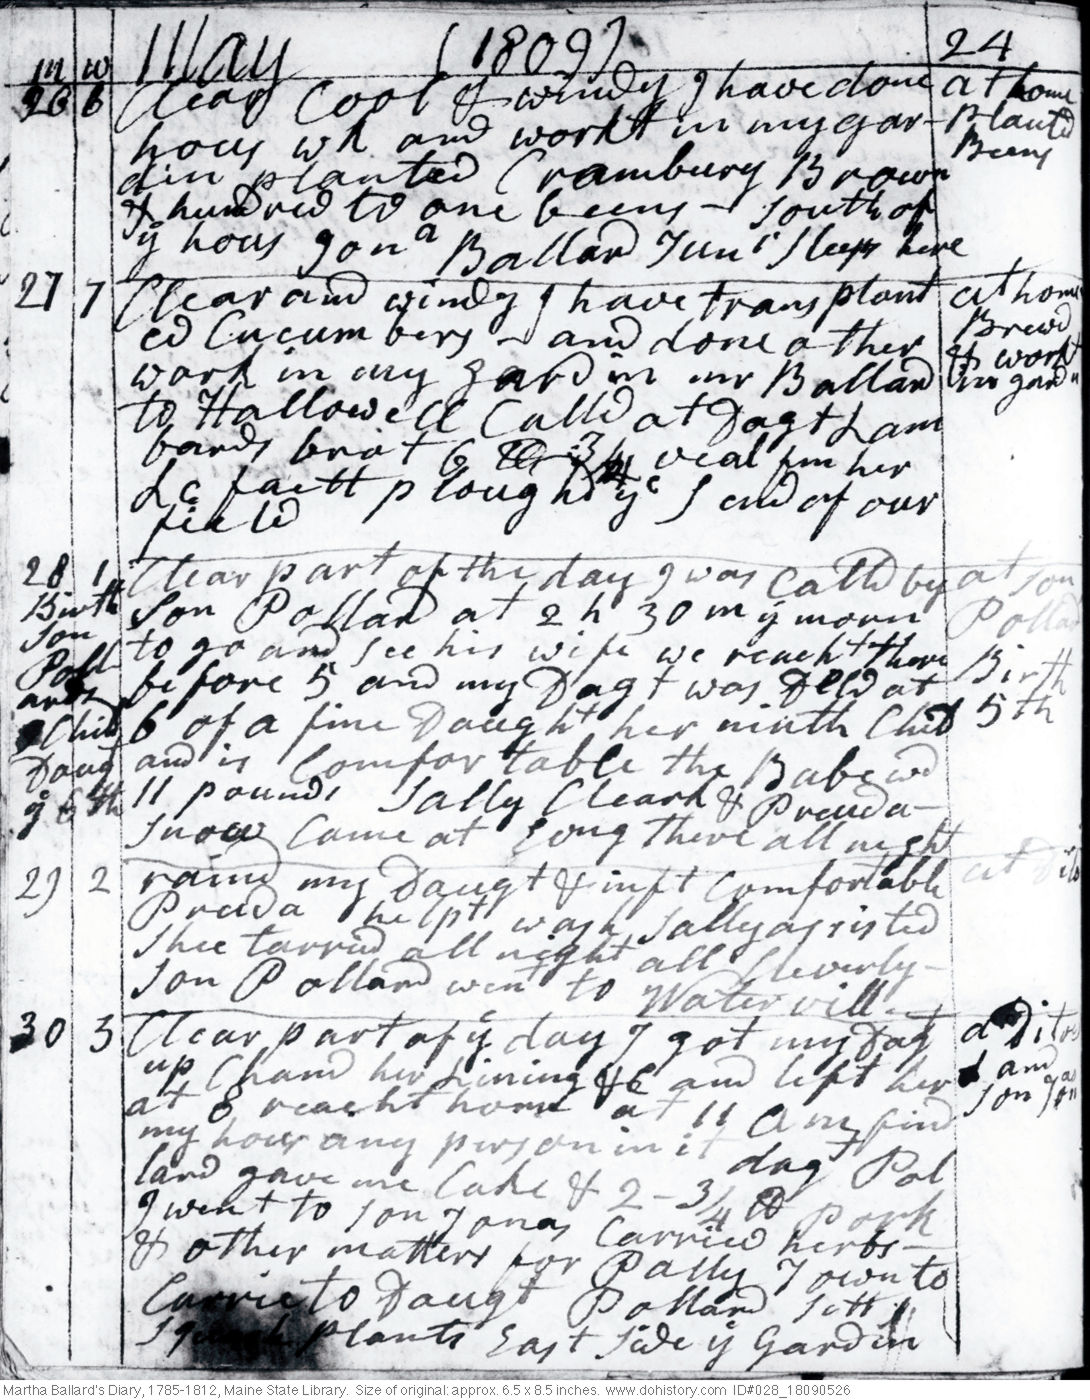 May (1809) 24
m w
26 6 Clear Cool & windy I have done at home
hous wk and workt in my gar- Plantd
din planted Crambury Brown Beens
& hundred to one beens - South of
ÿ hous Jonª Ballard Junr Sleeps here
27 7 Clear and windy I have transplant at home
ed Cucumbers - and done other Brewd
work in my gardin mr Ballard & workt
to Hallowell Calld at Dagt Lam in gardn
bards brot 6 lb 3/4 veal fm her
La fact ploughd ye S end of our
field
28 1 Clear part of the day I was Calld by at Son
Birth Son Pollard at 2 h 30 m ÿ morn Pollard
Son to go and see his wife we reacht there Birth
Poll before 5 and my Dagt was Deld at 5th
ards 6 of a fine Daught her ninth Child
Child and is Comfortable the Babe wd
Daug 11 pounds Sally Cleark & Preuda-
ÿ 6th Snow Came at Eving there all night
29 2 raind my Daugt & inft Comfortable at Dito
Preuda helpt wash Sally assisted
Shee tarried all night all Cleverly-
Son Pollard went to Watervill -
30 3 Clear part of ÿ day I got my Dagt Ditos
up Chand her Lining &C and left her and
at 8 reacht home at 11 Am find Son Jonas
my hous any person in it dagt Pol
lard gave me Cake & 2-3/4 lb pork
I went to son Jonas Carried herbs -
& other matters for Pally I own to
Carrie to Daugt Pollard Sett
Squash plants East Side ÿ Gardin
Martha Ballard's Diary, 1785-1812, Maine State Library. Size of original: approx. 6.5 x 8.5 inches. www.dohistory.com ID#028_18090526